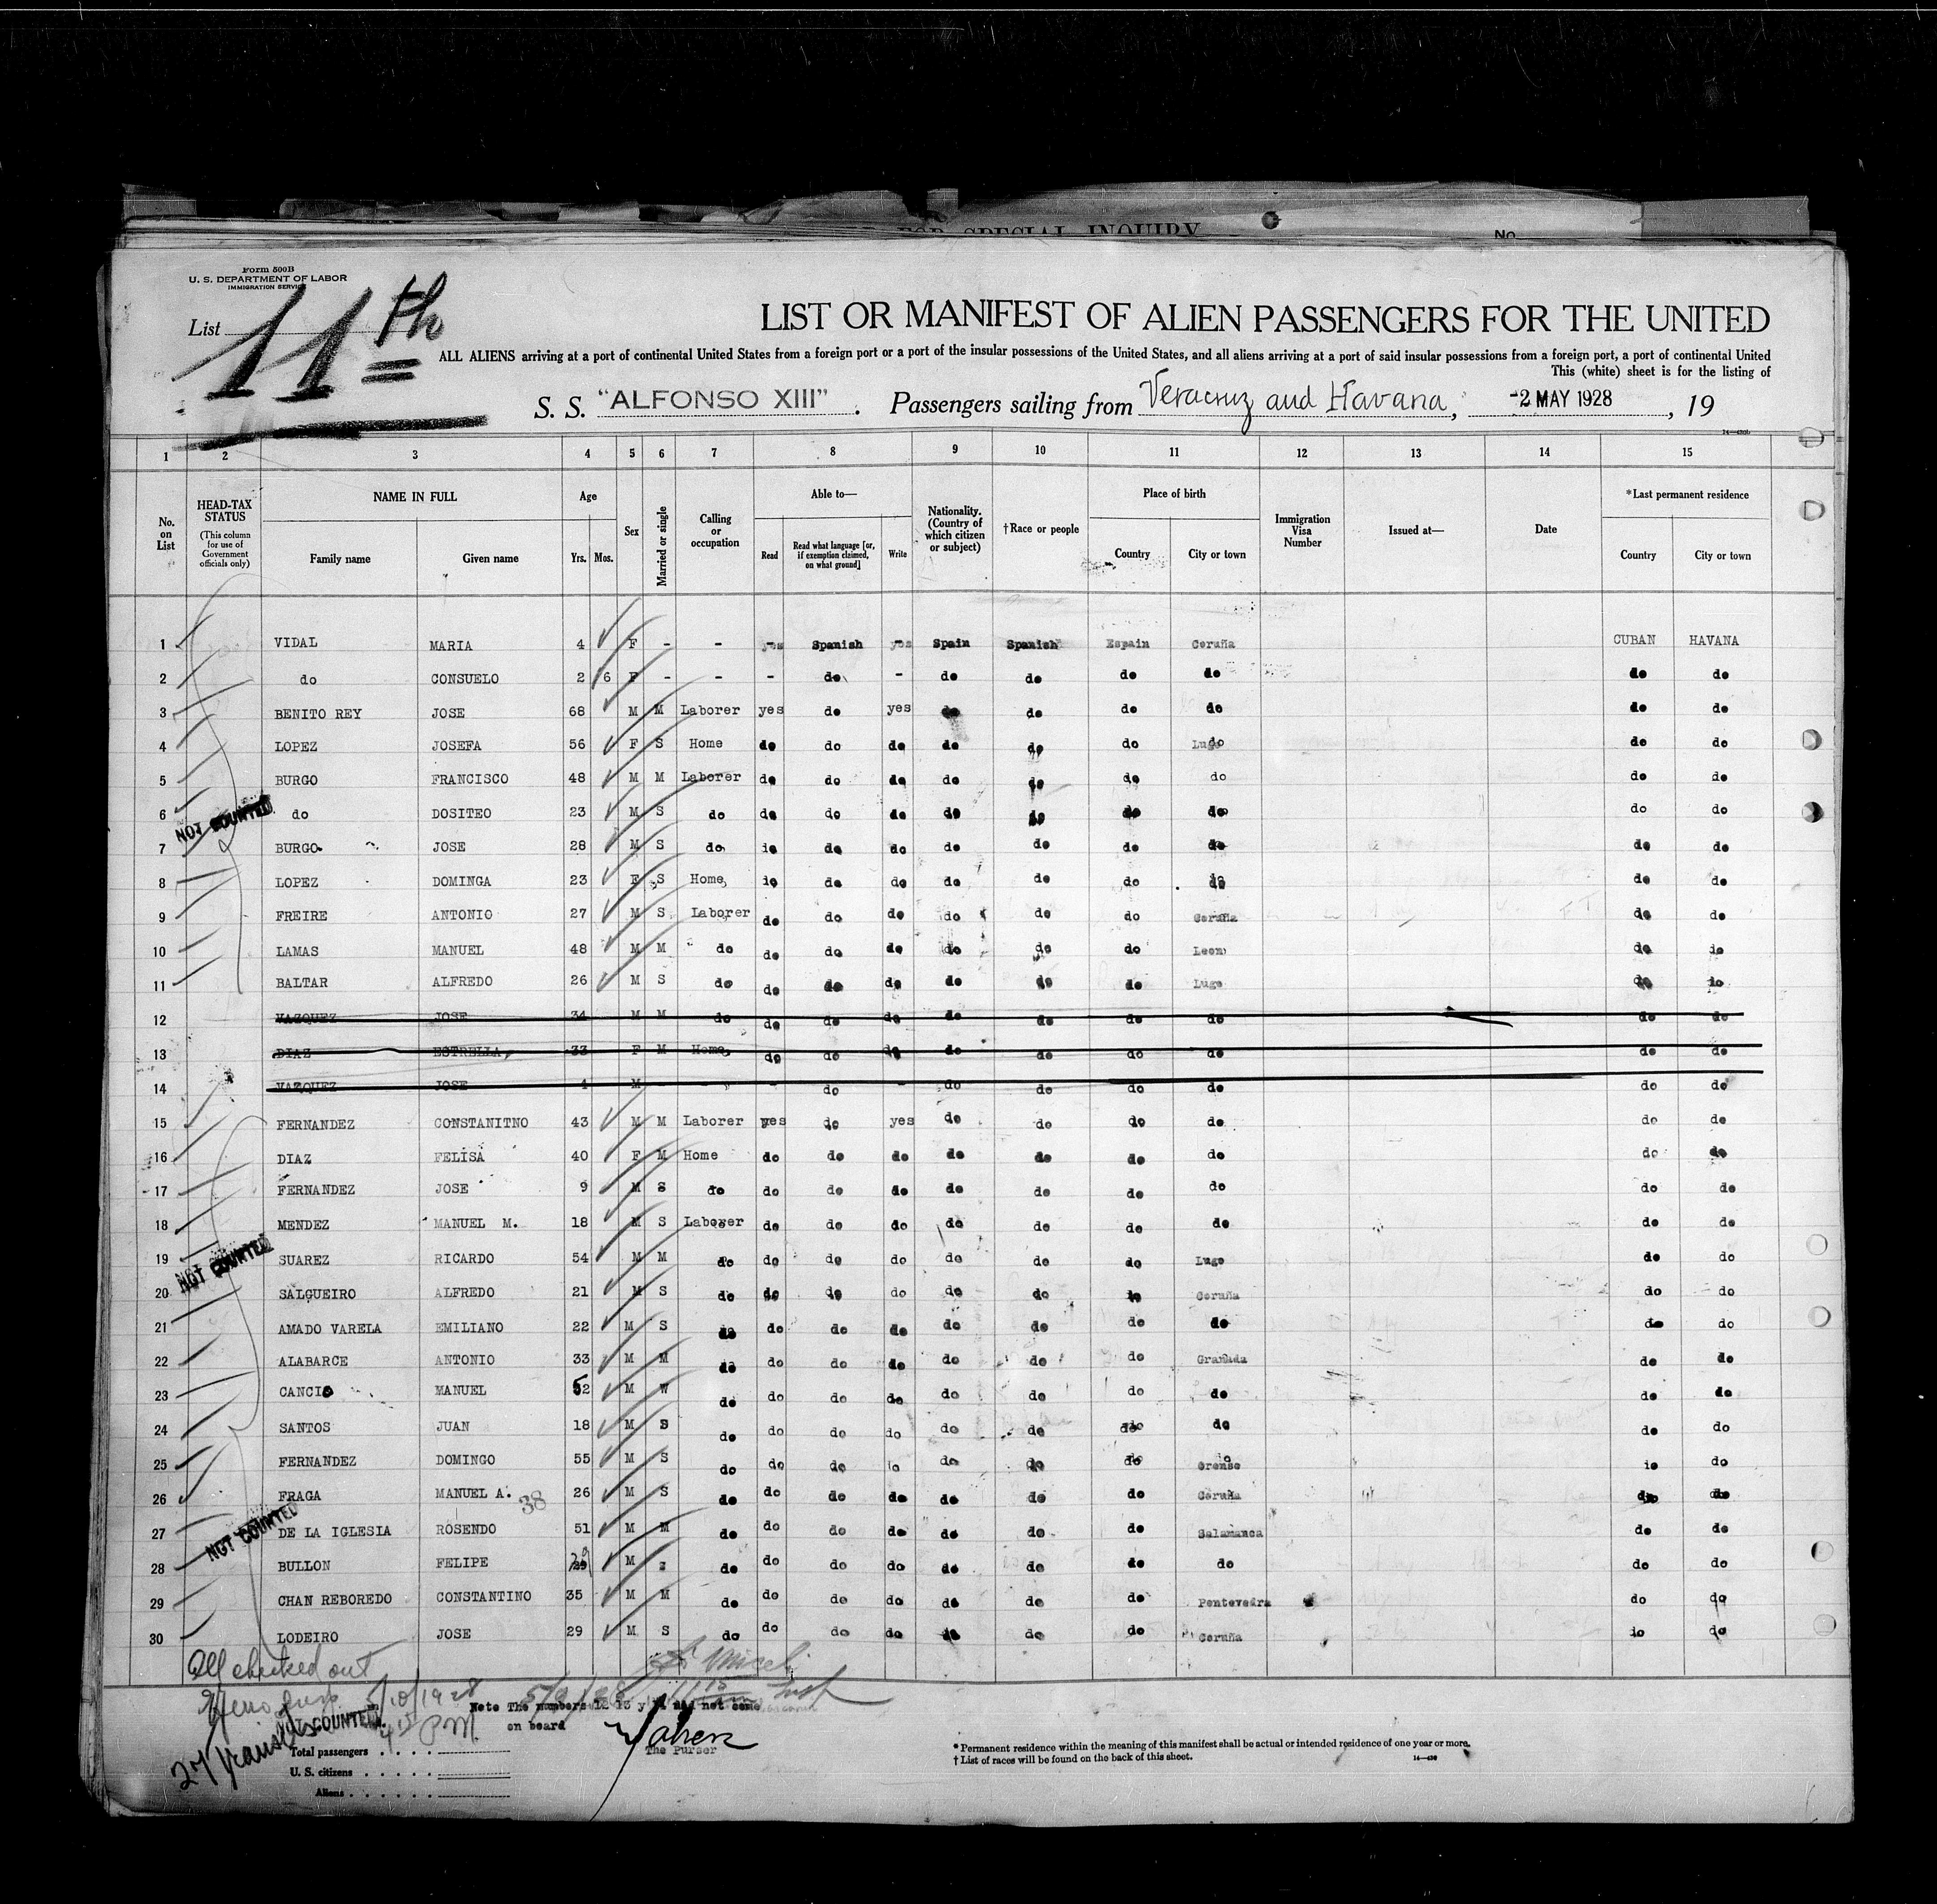 FOR SPECIAL INQUIRY
No.
Form 500B
U. S. DEPARTMENT OF LABOR
IMMIGRATION SERVICE
List 11th
LIST OR MANIFEST OF ALIEN PASSENGERS FOR THE UNITED
ALL ALIENS arriving at a port of continental United States from a foreign port or a port of the insular possessions of the United States, and all aliens arriving at a port of said insular possessions from a foreign port, a port of continental United
This (white) sheet is for the listing of
S. S. "ALFONSO XIII". Passengers sailing from Veracruz and Havana, -2 MAY 1928, 19
1 2 3 4 5 6 7 8 9 10 11 12 13 14 15
No. on List
HEAD-TAX STATUS
(This column for use of Government officials only)
NAME IN FULL
Family name Given name
Age
Yrs. Mos.
Sex
Married or single
Calling or occupation
Able to—
Read
Read what language [or, if exemption claimed, on what ground]
Write
Nationality. (Country of which citizen or subject)
†Race or people
Place of birth
Country City or town
Immigration Visa Number
Issued at—
Date
*Last permanent residence
Country City or town
1 VIDAL MARIA 4 F - - yes Spanish yes Spain Spanish Espain Coruña CUBAN HAVANA
2 do CONSUELO 2 6 F - - - do - do do do do do do
3 BENITO REY JOSE 68 M M Laborer yes do yes do do do do do do
4 LOPEZ JOSEFA 56 F S Home do do do do do do Lugo do do do
5 BURGO FRANCISCO 48 M M Laborer do do do do do do do do do
6 do DOSITEO 23 M S do do do do do do do do do do
NOT COUNTED
7 BURGO JOSE 28 M S do do do do do do do do do do
8 LOPEZ DOMINGA 23 F S Home do do do do do do do do do
9 FREIRE ANTONIO 27 M S Laborer do do do do do do Coruña do do
10 LAMAS MANUEL 48 M M do do do do do do do Leon do do
11 BALTAR ALFREDO 26 M S do do do do do do do Lugo do do
12 VAZQUEZ JOSE 34 M M do do do do do do do do do do
13 DIAZ ESTRELLA 33 F M Home do do do do do do do do do
14 VAZQUEZ JOSE 4 M - - do - do do do do do do
15 FERNANDEZ CONSTANITNO 43 M M Laborer yes do yes do do do do do do
16 DIAZ FELISA 40 F M Home do do do do do do do do do
17 FERNANDEZ JOSE 9 M S do do do do do do do do do do
18 MENDEZ MANUEL M. 18 M S Laborer do do do do do do do do do
19 SUAREZ RICARDO 54 M M do do do do do do do Lugo do do
NOT COUNTED
20 SALGUEIRO ALFREDO 21 M S do do do do do do do Coruña do do
21 AMADO VARELA EMILIANO 22 M S do do do do do do do do do do
22 ALABARCE ANTONIO 33 M M do do do do do do do Granada do do
23 CANCIO MANUEL 52 M W do do do do do do do do do do
24 SANTOS JUAN 18 M S do do do do do do do do do do
25 FERNANDEZ DOMINGO 55 M S do do do do do do do Orense do do
26 FRAGA MANUEL A. 38 26 M S do do do do do do do Coruña do do
NOT COUNTED
27 DE LA IGLESIA ROSENDO 51 M M do do do do do do do Salamanca do do
28 BULLON FELIPE 29 M S do do do do do do do do do do
29 CHAN REBOREDO CONSTANTINO 35 M M do do do do do do do Pontevedra do do
30 LODEIRO JOSE 29 M S do do do do do do do Coruña do do
All checked out
5/10/1928
4 15 P.M.
NOT COUNTED
27 Transits
Note The numbers 12 13 y 14 did not come
on board
The Purser
Total passengers
U. S. citizens
Aliens
*Permanent residence within the meaning of this manifest shall be actual or intended residence of one year or more.
†List of races will be found on the back of this sheet.
14—430